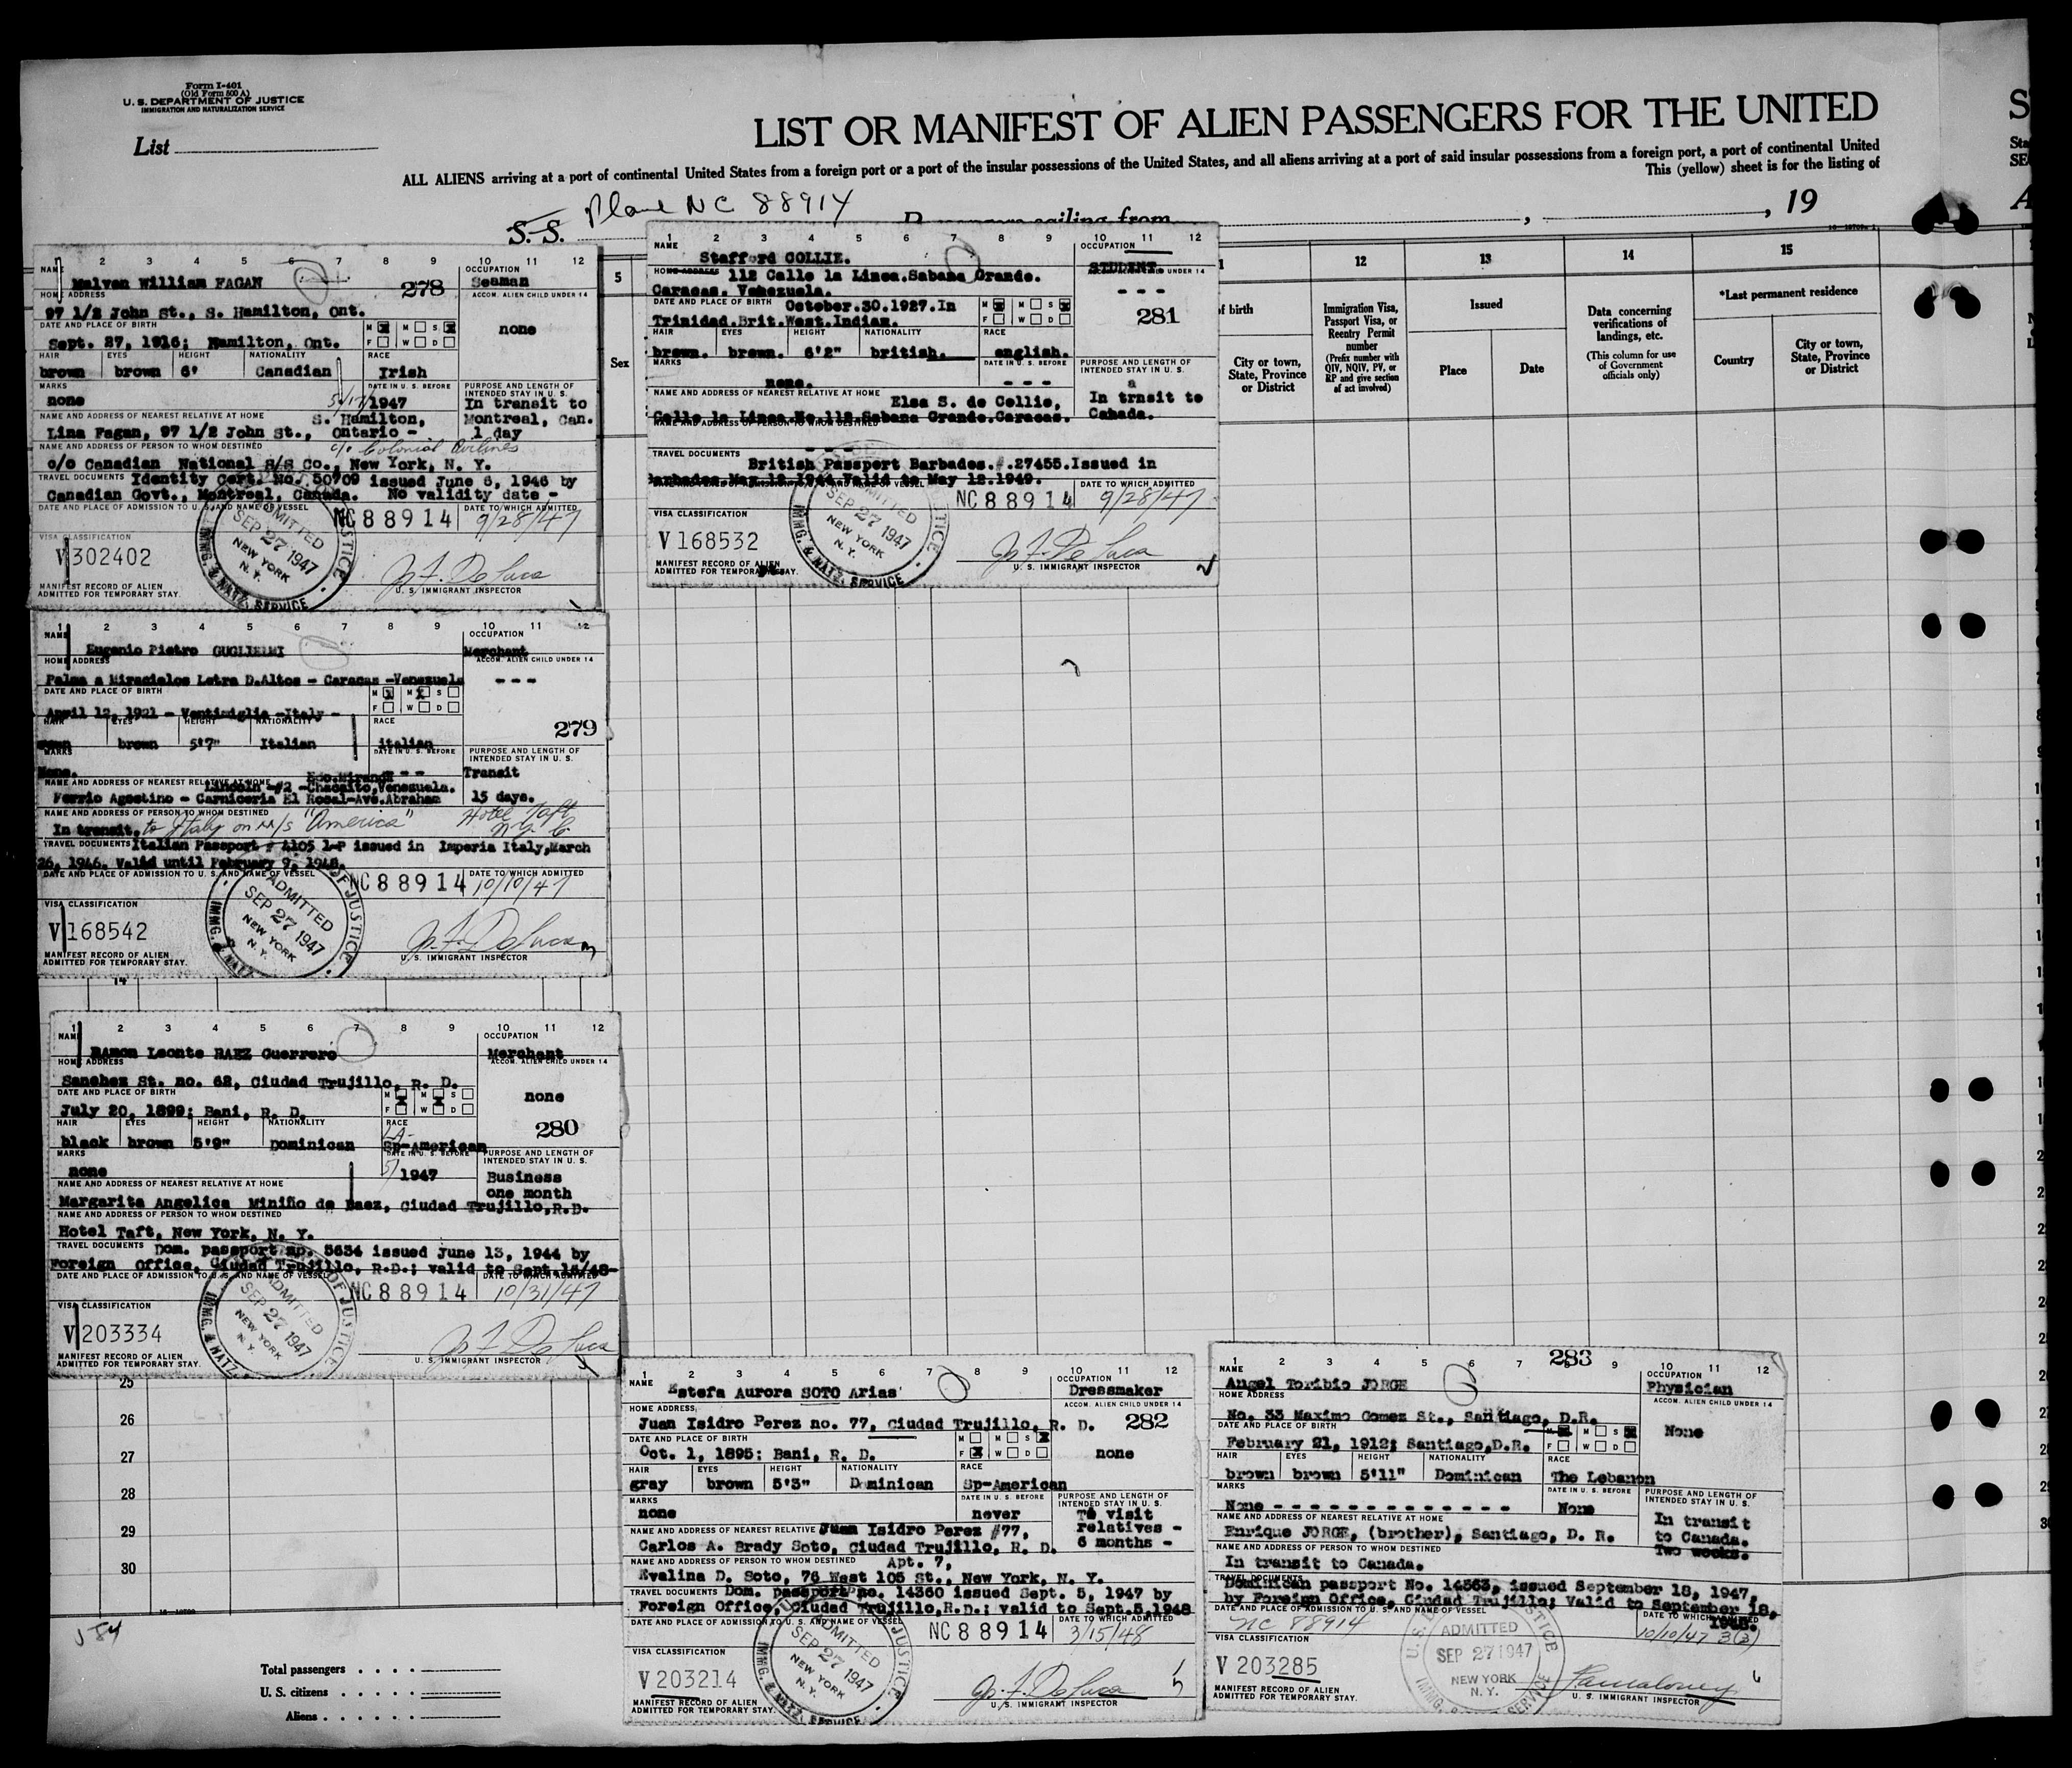 Form I-401
(Old Form 500 A)
U. S. DEPARTMENT OF JUSTICE
IMMIGRATION AND NATURALIZATION SERVICE
List
LIST OR MANIFEST OF ALIEN PASSENGERS FOR THE UNITED
ALL ALIENS arriving at a port of continental United States from a foreign port or a port of the insular possessions of the United States, and all aliens arriving at a port of said insular possessions from a foreign port, a port of continental United
This (yellow) sheet is for the listing of
S. S. Plane NC 88914
sailing from , , 19
1 2 3 4 5 6 7 8 9 10 11 12
NAME OCCUPATION
Malven William FAGAN 278 Seaman
HOME ADDRESS ACCOM. ALIEN CHILD UNDER 14
97 1/2 John St., S. Hamilton, Ont.
DATE AND PLACE OF BIRTH M M S none
Sept. 27, 1916; Hamilton, Ont. F W D
HAIR EYES HEIGHT NATIONALITY RACE
brown brown 6' Canadian Irish
MARKS DATE IN U. S. BEFORE PURPOSE AND LENGTH OF INTENDED STAY IN U. S.
none 1947 In transit to
NAME AND ADDRESS OF NEAREST RELATIVE AT HOME S. Hamilton, Montreal, Can.
Lina Fagan, 97 1/2 John St., Ontario - 1 day
NAME AND ADDRESS OF PERSON TO WHOM DESTINED c/o Colonial Airlines
c/o Canadian National S/S Co., New York, N. Y.
TRAVEL DOCUMENTS Identity Cert. No. 50709 issued June 6, 1946 by
Canadian Govt., Montreal, Canada. No validity date -
DATE AND PLACE OF ADMISSION TO U. S. AND NAME OF VESSEL DATE TO WHICH ADMITTED
NC88914 9/28/47
VISA CLASSIFICATION
V 302402
ADMITTED
SEP 27 1947
NEW YORK
N. Y.
IMMG. & NATZ. SERVICE
MANIFEST RECORD OF ALIEN
ADMITTED FOR TEMPORARY STAY.
U. S. IMMIGRANT INSPECTOR
1 2 3 4 5 6 7 8 9 10 11 12
NAME OCCUPATION
Stafford COLLIE. STUDENT
HOME ADDRESS 112 Calle la Linea.Sabana Grande.
Caracas. Venezuela. - - -
DATE AND PLACE OF BIRTH October.30.1927.In M M S
Trinidad.Brit.West.Indian. F W D 281
HAIR EYES HEIGHT NATIONALITY RACE
brown. brown. 6'2" british. english.
MARKS DATE IN U. S. BEFORE PURPOSE AND LENGTH OF INTENDED STAY IN U. S.
none. - - -
NAME AND ADDRESS OF NEAREST RELATIVE AT HOME Elsa S. de Collie, In trnsit to
Calle la Linea.No.112.Sabana Grande.Caracas. Canada.
NAME AND ADDRESS OF PERSON TO WHOM DESTINED
TRAVEL DOCUMENTS
British Passport Barbados.#.27455.Issued in
Barbados May.12.1944.Valid to May 12.1949.
DATE AND PLACE OF ADMISSION TO U. S. AND NAME OF VESSEL DATE TO WHICH ADMITTED
NC88914 9/28/47
VISA CLASSIFICATION
V 168532
ADMITTED
SEP 27 1947
NEW YORK
N. Y.
IMMG. & NATZ. SERVICE
MANIFEST RECORD OF ALIEN
ADMITTED FOR TEMPORARY STAY.
U. S. IMMIGRANT INSPECTOR
5
Sex
of birth
City or town, State, Province or District
12
Immigration Visa, Passport Visa, or Reentry Permit number
(Prefix number with QIV, NQIV, PV, or RP and give section of act involved)
13
Issued
Place Date
14
Data concerning verifications of landings, etc.
(This column for use of Government officials only)
15
*Last permanent residence
Country
City or town, State, Province or District
1 2 3 4 5 6 7 8 9 10 11 12
NAME OCCUPATION
Eugenio Pietro GUGLIELMI Merchant
HOME ADDRESS ACCOM. ALIEN CHILD UNDER 14
Palma a Miracielos Letra D.Altos - Caracas -Venezuela - - -
DATE AND PLACE OF BIRTH M M S
April 12, 1921 - Ventimiglia -Italy - F W D
HAIR EYES HEIGHT NATIONALITY RACE 279
brown 5'7" Italian italian
MARKS DATE IN U. S. BEFORE PURPOSE AND LENGTH OF INTENDED STAY IN U. S.
None. Edo.Miranda - - Transit
NAME AND ADDRESS OF NEAREST RELATIVE AT HOME Lincoln -#2 -Chacaito,Venezuela.
Ferrio Agostino - Carniceria El Rosal-Ave.Abraham 15 days.
NAME AND ADDRESS OF PERSON TO WHOM DESTINED
In transit. to Italy on M/s "America" Hotel Taft N.Y.C.
TRAVEL DOCUMENTS Italian Passport # 4105 1-P issued in Imperia Italy,March
26, 1946. Valid until February 9, 1948.
DATE AND PLACE OF ADMISSION TO U. S. AND NAME OF VESSEL DATE TO WHICH ADMITTED
NC88914 10/10/47
VISA CLASSIFICATION
V 168542
ADMITTED
SEP 27 1947
NEW YORK
N. Y.
MANIFEST RECORD OF ALIEN
ADMITTED FOR TEMPORARY STAY.
U. S. IMMIGRANT INSPECTOR
1 2 3 4 5 6 7 8 9 10 11 12
NAME OCCUPATION
RAMON Leonte BAEZ Guerrero Merchant
HOME ADDRESS ACCOM. ALIEN CHILD UNDER 14
Sanchez St. no. 62, Ciudad Trujillo, R. D.
DATE AND PLACE OF BIRTH M M S none
July 20, 1899; Bani, R. D. F W D
HAIR EYES HEIGHT NATIONALITY RACE 280
black brown 5'9" Dominican Sp-American
MARKS DATE IN U. S. BEFORE PURPOSE AND LENGTH OF INTENDED STAY IN U. S.
none 1947 Business
NAME AND ADDRESS OF NEAREST RELATIVE AT HOME one month
Margarita Angelica Miniño de Baez, Ciudad Trujillo,R.D.
NAME AND ADDRESS OF PERSON TO WHOM DESTINED
Hotel Taft, New York, N. Y.
TRAVEL DOCUMENTS Dom. passport no. 5634 issued June 13, 1944 by
Foreign Office, Ciudad Trujillo, R.D.; valid to Sept.15/48-
DATE AND PLACE OF ADMISSION TO U. S. AND NAME OF VESSEL DATE TO WHICH ADMITTED
NC88914 10/31/47
VISA CLASSIFICATION
V 203334
ADMITTED
SEP 27 1947
NEW YORK
N. Y.
MANIFEST RECORD OF ALIEN
ADMITTED FOR TEMPORARY STAY.
U. S. IMMIGRANT INSPECTOR
1 2 3 4 5 6 7 8 9 10 11 12
NAME OCCUPATION
Estefa Aurora SOTO Arias Dressmaker
HOME ADDRESS ACCOM. ALIEN CHILD UNDER 14
Juan Isidro Perez no. 77, Ciudad Trujillo, R. D. 282
DATE AND PLACE OF BIRTH M M S
Oct. 1, 1895; Bani, R. D. F W D none
HAIR EYES HEIGHT NATIONALITY RACE
gray brown 5'3" Dominican Sp-American
MARKS DATE IN U. S. BEFORE PURPOSE AND LENGTH OF INTENDED STAY IN U. S.
none never To visit
NAME AND ADDRESS OF NEAREST RELATIVE Juan Isidro Perez #77, relatives -
Carlos A. Brady Soto, Ciudad Trujillo, R. D. 6 months -
NAME AND ADDRESS OF PERSON TO WHOM DESTINED Apt. 7,
Evalina D. Soto, 76 West 105 St., New York, N. Y.
TRAVEL DOCUMENTS Dom. passport no. 14360 issued Sept. 5, 1947 by
Foreign Office, Ciudad Trujillo,R.D.; valid to Sept.5,1948
DATE AND PLACE OF ADMISSION TO U. S. AND NAME OF VESSEL DATE TO WHICH ADMITTED
NC88914 3/15/48
VISA CLASSIFICATION
V 203214
ADMITTED
SEP 27 1947
NEW YORK
N. Y.
IMMG. & NATZ. SERVICE
MANIFEST RECORD OF ALIEN
ADMITTED FOR TEMPORARY STAY.
U. S. IMMIGRANT INSPECTOR
283
1 2 3 4 5 6 7 9 10 11 12
NAME OCCUPATION
Angel Toribio JORGE Physician
HOME ADDRESS ACCOM. ALIEN CHILD UNDER 14
No. 33 Maximo Gomez St., Santiago, D.R.
DATE AND PLACE OF BIRTH M M S None
February 21, 1912; Santiago,D.R. F W D
HAIR EYES HEIGHT NATIONALITY RACE
brown brown 5'11" Dominican The Lebanon
MARKS DATE IN U. S. BEFORE PURPOSE AND LENGTH OF INTENDED STAY IN U. S.
None - - - - - - - - - - - - - None
NAME AND ADDRESS OF NEAREST RELATIVE AT HOME In transit
Enrique JORGE, (brother), Santiago, D. R. to Canada.
NAME AND ADDRESS OF PERSON TO WHOM DESTINED Two weeks.
In transit to Canada.
TRAVEL DOCUMENTS
Dominican passport No. 14563, issued September 18, 1947,
by Foreign Office, Ciudad Trujillo; Valid to September 18,
1948.
DATE AND PLACE OF ADMISSION TO U. S. AND NAME OF VESSEL DATE TO WHICH ADMITTED
NC 88914 10/10/47 3(3)
VISA CLASSIFICATION
V 203285
ADMITTED
SEP 27 1947
NEW YORK
N. Y.
MANIFEST RECORD OF ALIEN
ADMITTED FOR TEMPORARY STAY.
U. S. IMMIGRANT INSPECTOR
25
26
27
28
29
30
Total passengers . . . .
U. S. citizens . . . . .
Aliens . . . . . .